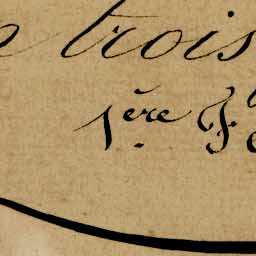 trois
1ère